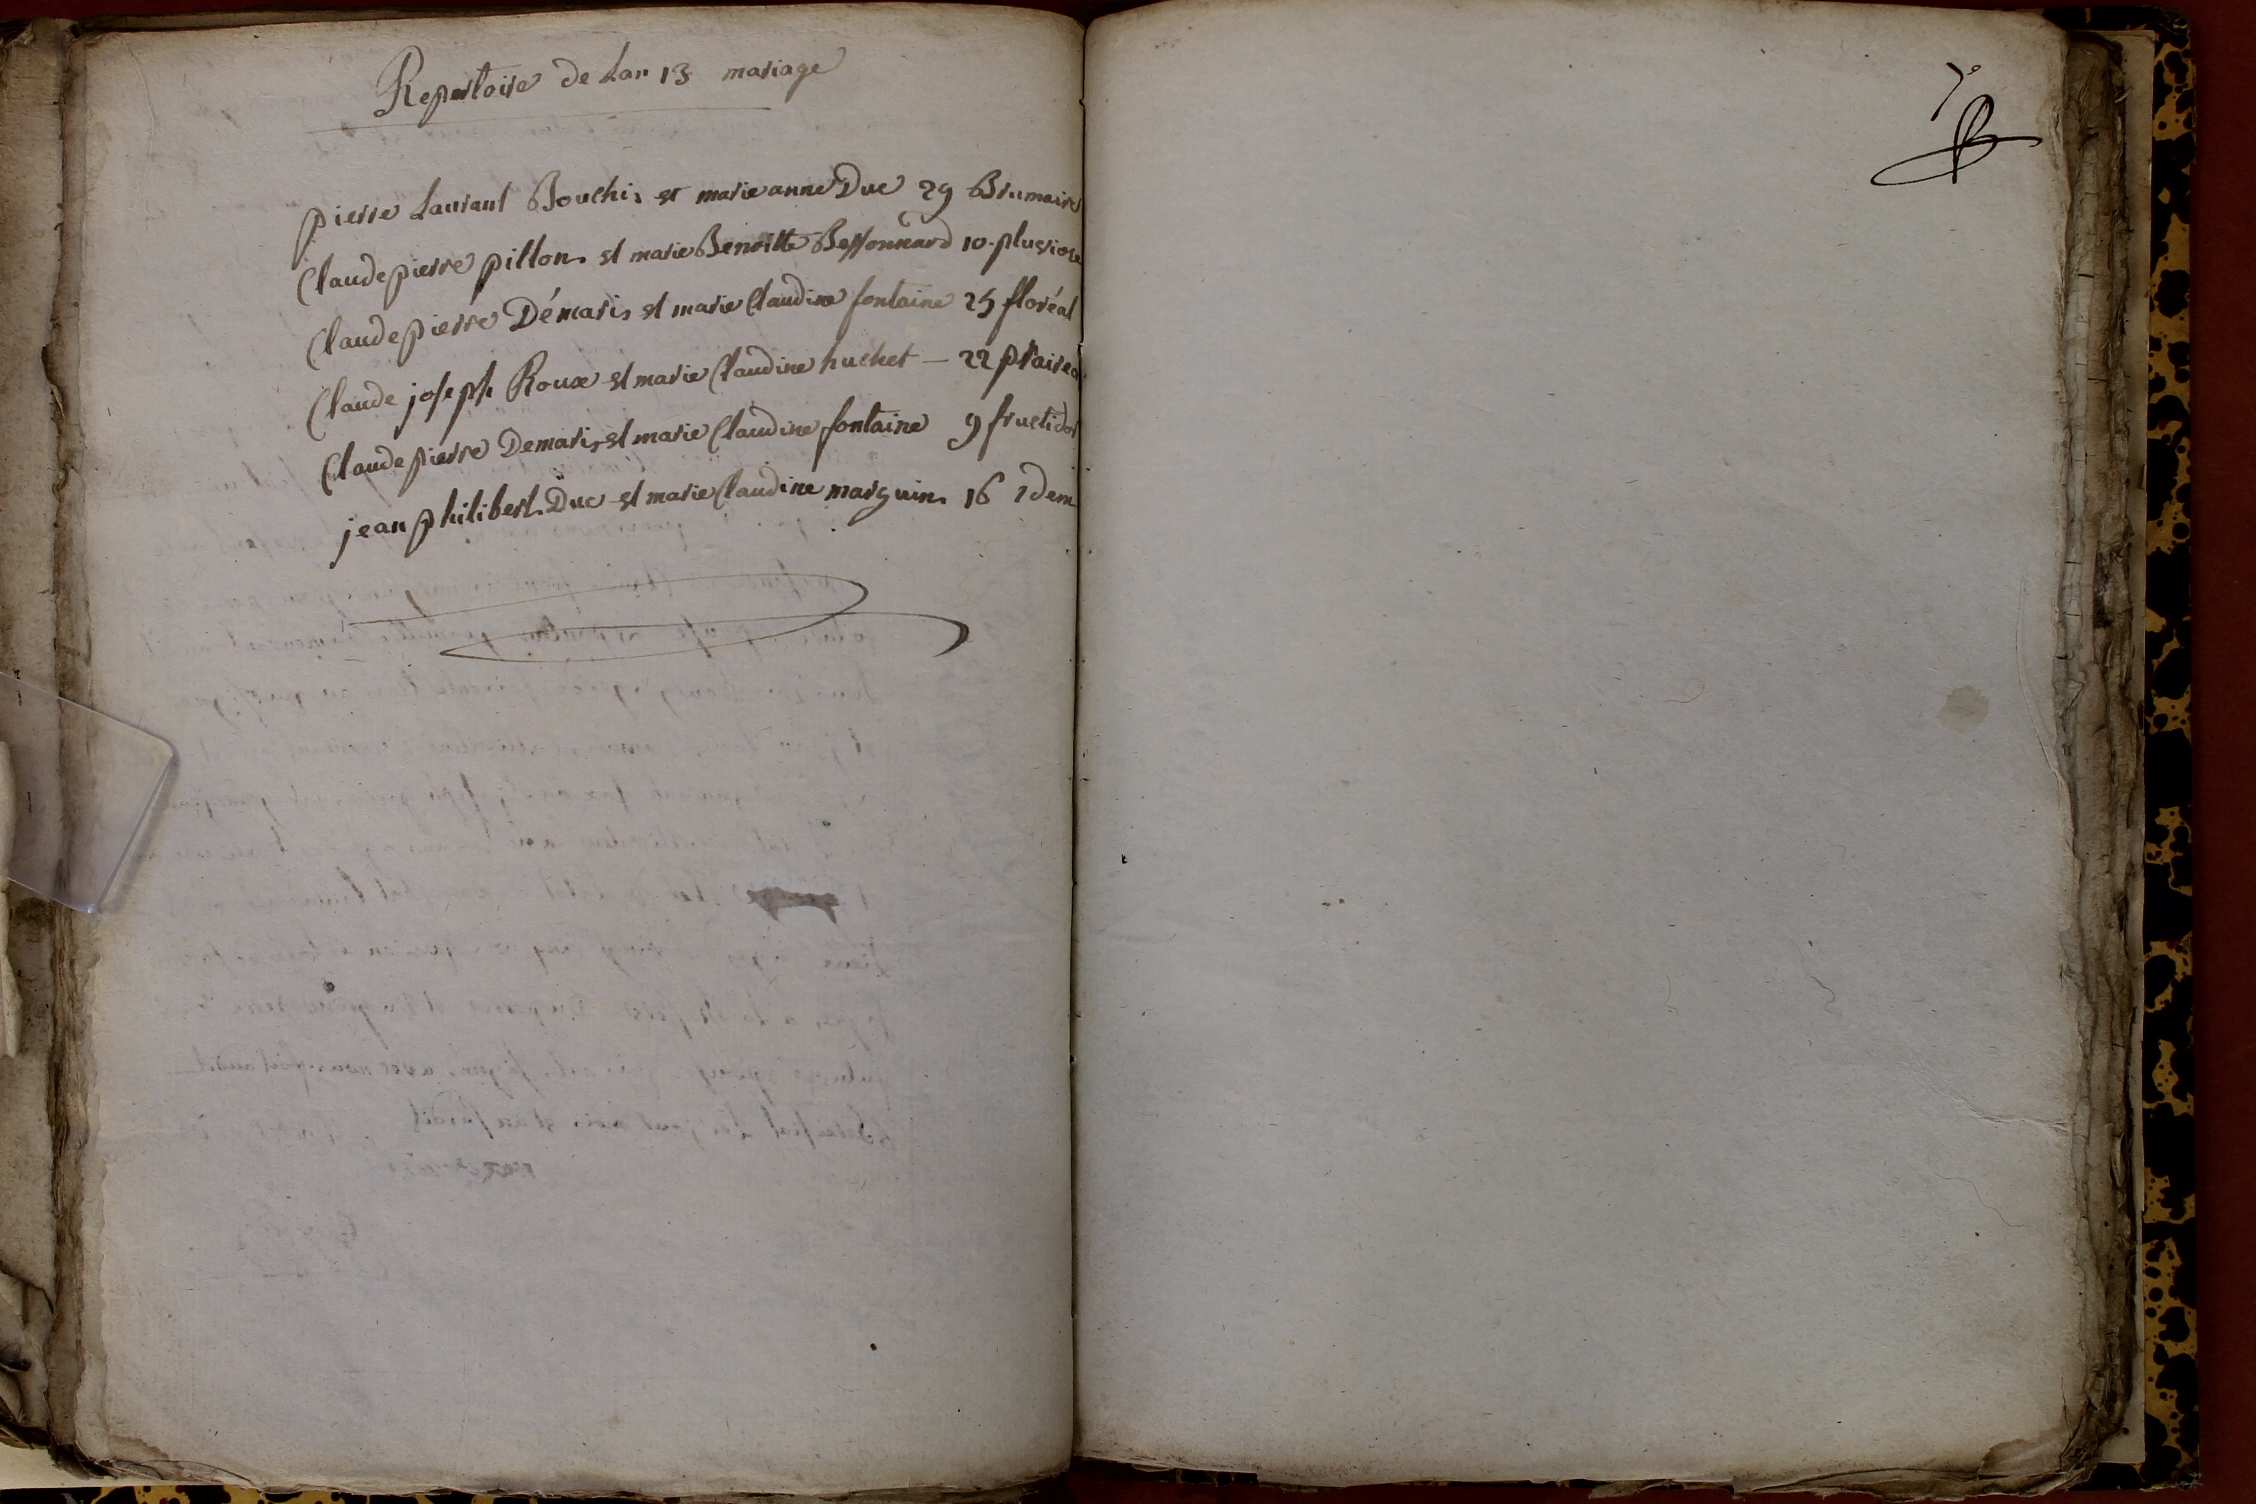 Repertoire de Lan 13 mariage
pierre Laurant Bouchis et marie anne Duc 29 Brumaire
Claude pierre pillon et marie Benoitte Bessonnard 10 pluviose
Claude pierre Démaris et marie Claudine fontaine 25 floréal
Claude joseph Roux et marie Claudine huchet — 22 prairea
Claude pierre Demaris et marie Claudine fontaine 9 fructidor
jean philibert Duc et marie Claudine marguin 16 idem
7e